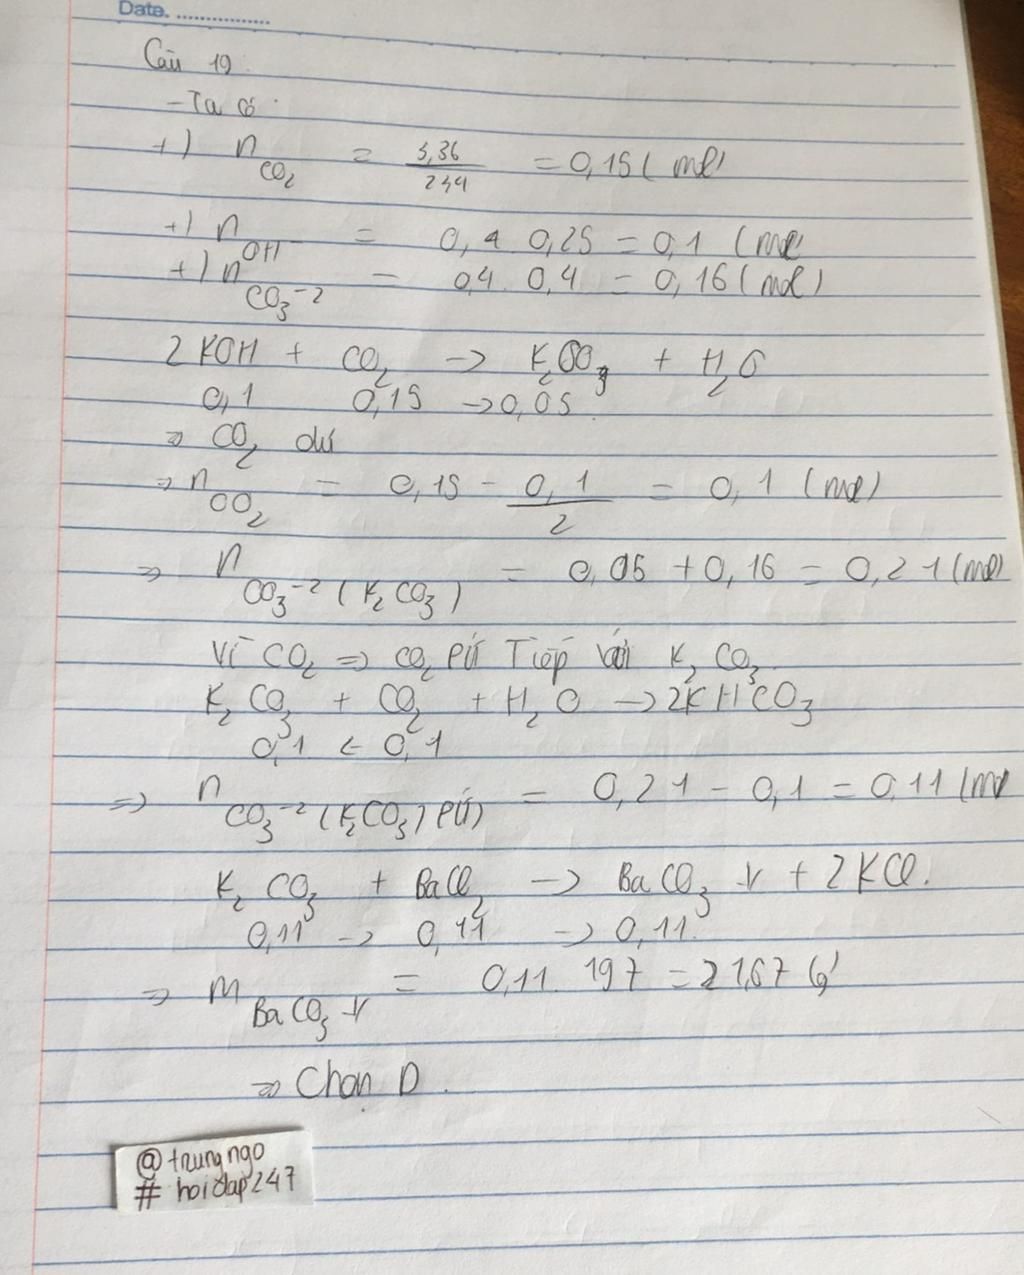 Date. ................
Câu 19.
- Ta có:
+) n CO2 = 3,36 / 22,4 = 0,15 ( mol)
+) n OH- = 0,4 . 0,25 = 0,1 (mol)
+) n CO3-2 = 0,4 . 0,4 = 0,16 (mol)
2 KOH + CO2 -> K2CO3 + H2O
0,1 0,15 -> 0,05
=> CO2 dư
=> n CO2 = 0,15 - 0,1 / 2 = 0,1 (mol)
=> n CO3-2 ( K2CO3 ) = 0,05 + 0,16 = 0,21 (mol)
Vì CO2 => CO2 pứ Tiếp với K2CO3
K2CO3 + CO2 + H2O -> 2KHCO3
0,1 <- 0,1
=> n CO3-2 (K2CO3) pứ = 0,21 - 0,1 = 0,11 (mol
K2CO3 + BaCl2 -> BaCO3 ↓ + 2KCl.
0,11 -> 0,11 -> 0,11.
=> m BaCO3 ↓ = 0,11 . 197 = 21,67 (g)
=> Chọn D.
@trungngo
# hoidap247